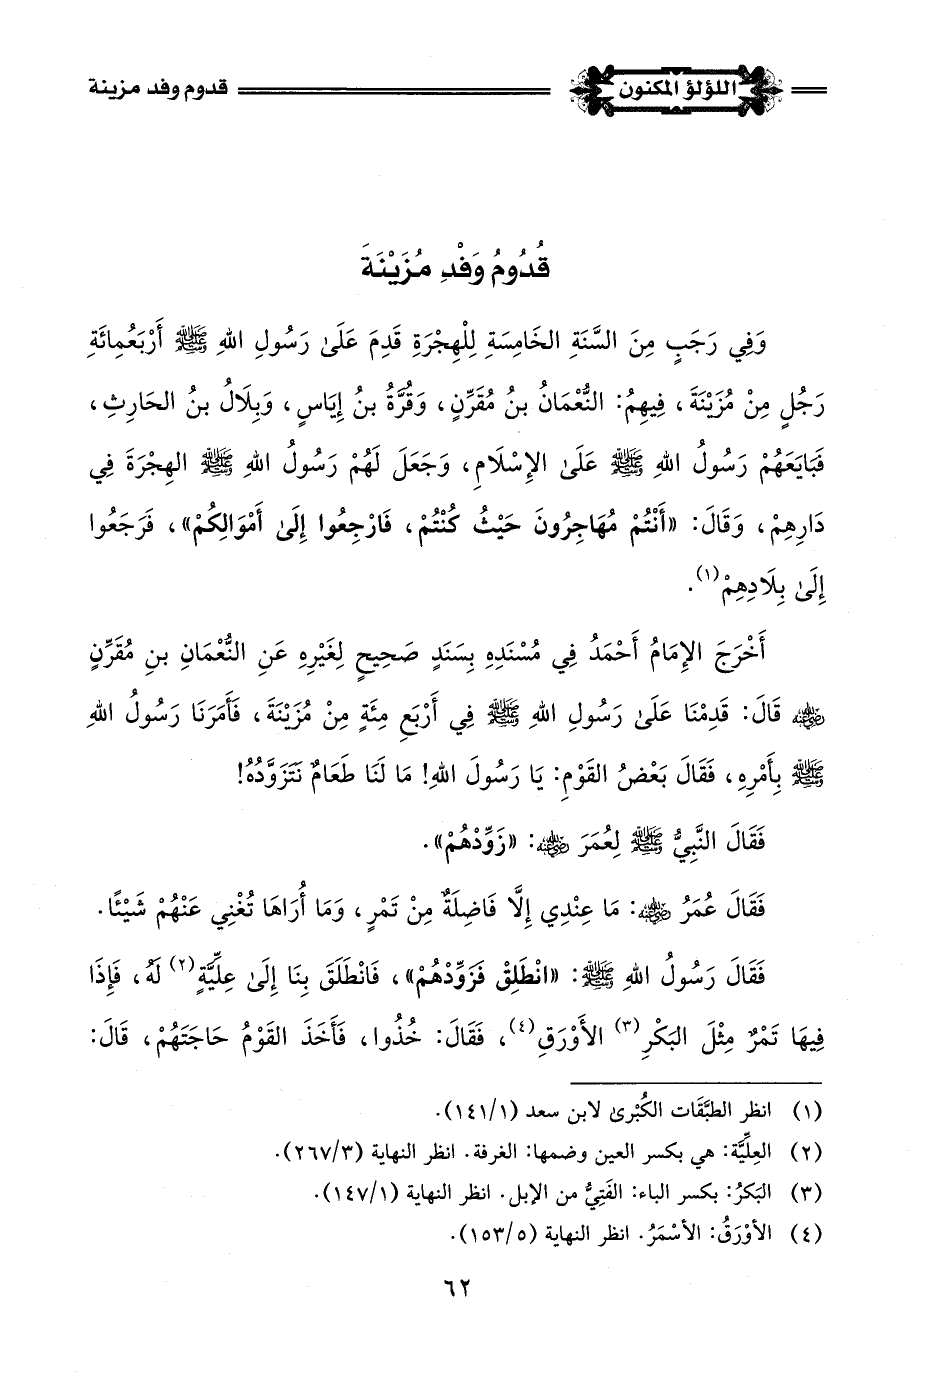 اللؤلؤ المكنون
قدوم وفد مزينة
قُدُومُ وَفْدِ مُزَيْنَةَ
وَفِي رَجَبٍ مِنَ السَّنَةِ الخَامِسَةِ لِلْهِجْرَةِ قَدِمَ عَلَىٰ رَسُولِ اللهِ ﷺ أَرْبَعُمِائَةِ
رَجُلٍ مِنْ مُزَيْنَةَ، فِيهِمُ: النُّعْمَانُ بنُ مُقَرِّنٍ، وَقُرَّةُ بنُ إِيَاسٍ، وَبِلَالُ بنُ الحَارِثِ،
فَبَايَعَهُمْ رَسُولُ اللهِ ﷺ عَلَىٰ الإِسْلَامِ، وَجَعَلَ لَهُمْ رَسُولُ اللهِ ﷺ الهِجْرَةَ فِي
دَارِهِمْ، وَقَالَ: «أَنْتُمْ مُهَاجِرُونَ حَيْثُ كُنْتُمْ، فَارْجِعُوا إِلَىٰ أَمْوَالِكُمْ»، فَرَجَعُوا
إِلَىٰ بِلَادِهِمْ(١).
أَخْرَجَ الإِمَامُ أَحْمَدُ فِي مُسْنَدِهِ بِسَنَدٍ صَحِيحٍ لِغَيْرِهِ عَنِ النُّعْمَانِ بنِ مُقَرِّنٍ
رضي الله عنه قَالَ: قَدِمْنَا عَلَىٰ رَسُولِ اللهِ ﷺ فِي أَرْبَعِ مِئَةٍ مِنْ مُزَيْنَةَ، فَأَمَرَنَا رَسُولُ اللهِ
ﷺ بِأَمْرِهِ، فَقَالَ بَعْضُ القَوْمِ: يَا رَسُولَ اللهِ! مَا لَنَا طَعَامٌ نَتَزَوَّدُهُ!
فَقَالَ النَّبِيُّ ﷺ لِعُمَرَ رضي الله عنه: «زَوِّدْهُمْ».
فَقَالَ عُمَرُ رضي الله عنه: مَا عِنْدِي إِلَّا فَاضِلَةٌ مِنْ تَمْرٍ، وَمَا أُرَاهَا تُغْنِي عَنْهُمْ شَيْئًا.
فَقَالَ رَسُولُ اللهِ ﷺ: «انْطَلِقْ فَزَوِّدْهُمْ»، فَانْطَلَقَ بِنَا إِلَىٰ عِلِّيَّةٍ(٢) لَهُ، فَإِذَا
فِيهَا تَمْرٌ مِثْلَ البَكْرِ(٣) الأَوْرَقِ(٤)، فَقَالَ: خُذُوا، فَأَخَذَ القَوْمُ حَاجَتَهُمْ، قَالَ:
(١) انظر الطبَّقَات الكُبْرىٰ لابن سعد (١٤١/١).
(٢) العِلِّيَّة: هي بكسر العين وضمها: الغرفة. انظر النهاية (٢٦٧/٣).
(٣) البَكرُ: بكسر الباء: الفَتِيُّ من الإبل. انظر النهاية (١٤٧/١).
(٤) الأوْرَقُ: الأسْمَرُ. انظر النهاية (١٥٣/٥).
٦٢